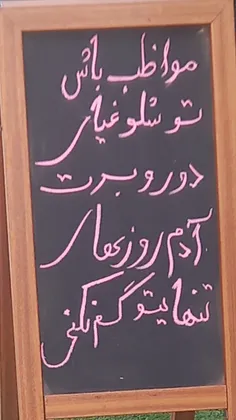 مواظب باش
تو شلوغیای
دور و برت
آدم روزهای
تنهاییتو گم نکنی